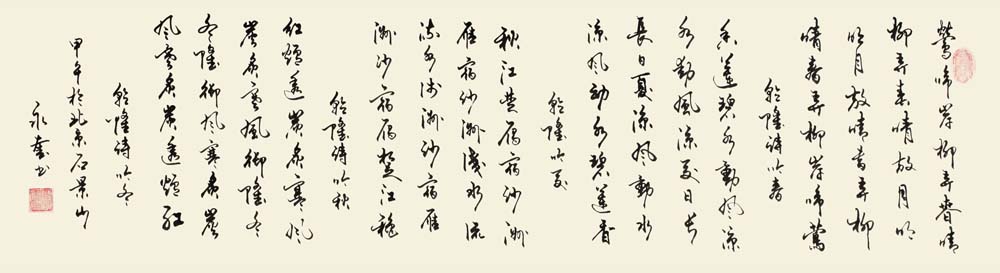 鶯啼岸柳弄春晴
柳弄春晴夜月明
明月夜晴春弄柳
晴春弄柳岸啼鶯
乾隆詩吟春
香蓮碧水動風涼
水動風涼夏日長
長日夏涼風動水
涼風動水碧蓮香
乾隆吟夏
秋江楚雁宿沙洲
雁宿沙洲淺水流
流水淺洲沙宿雁
洲沙宿雁楚江秋
乾隆詩吟秋
紅爐透炭炙寒風
炭炙寒風御隆冬
冬隆御風寒炙炭
風寒炙炭透爐紅
乾隆詩吟冬
甲午於北京石景山
永書